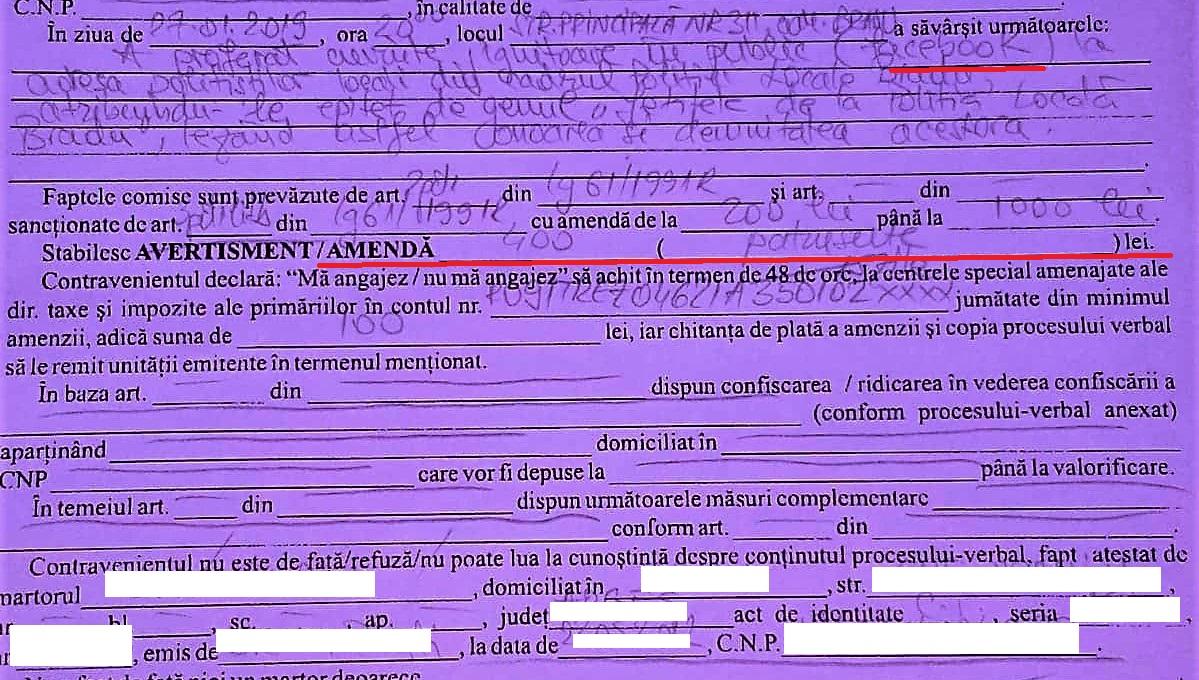 C.N.P. , în calitate de
În ziua de 27.01.2019, ora 20, locul STR. PRINCIPALĂ NR 311 com. Bradu a săvârșit următoarele:
A proferat cuvinte jignitoare în public (facebook) la
adresa polițiștilor locali din cadrul Poliției Locale Bradu,
atribuindu-le epitet de genul "fetițele de la Poliția Locală
Bradu", lezând astfel onoarea și demnitatea acestora.
Faptele comise sunt prevăzute de art. din lg 61/1991R și art. din
sancționate de art. din lg 61/1991R, cu amendă de la 200 lei până la 1000 lei.
Stabilesc AVERTISMENT / AMENDĂ 400 ( patrusute ) lei.
Contravenientul declară: “Mă angajez / nu mă angajez” să achit în termen de 48 de ore, la centrele special amenajate ale
dir. taxe și impozite ale primăriilor în contul nr. jumătate din minimul
amenzii, adică suma de 100 lei, iar chitanța de plată a amenzii și copia procesului verbal
să le remit unității emitente în termenul menționat.
În baza art. din dispun confiscarea / ridicarea în vederea confiscării a
(conform procesului-verbal anexat)
aparținând domiciliat în
CNP care vor fi depuse la până la valorificare.
În temeiul art. din dispun următoarele măsuri complementare
conform art. din .
Contravenientul nu este de față/refuză/nu poate lua la cunoștință despre conținutul procesului-verbal, fapt atestat de
martorul , domiciliat în , str. ,
bl. , sc. , ap. , județ act de identitate , seria ,
, emis de , la data de , C.N.P. .